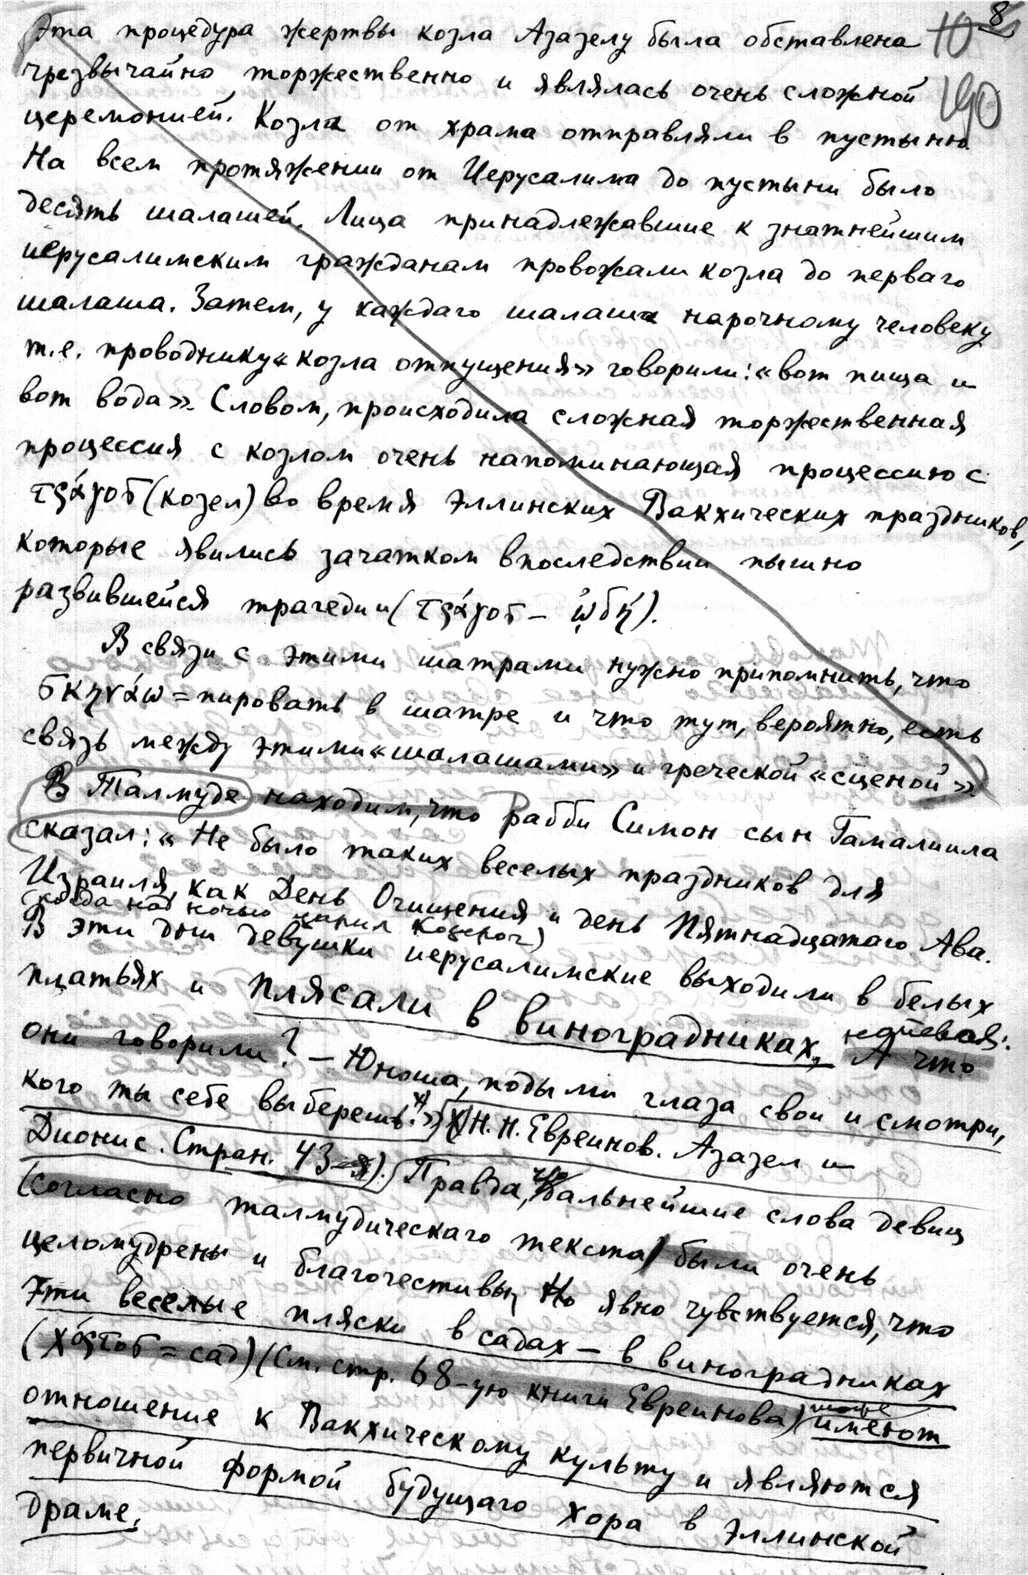 8
10
190
Эта процедура жертвы козла Азазелу была обставлена
чрезвычайно торжественно и являлась очень сложной
церемонией. Козла от храма отправляли в пустыню.
На всем протяжении от Иерусалима до пустыни было
десять шалашей. Лица принадлежавшие к знатнейшим
иерусалимским гражданам провожали козла до перваго
шалаша. Затем, у каждаго шалаша нарочному человеку
т.е. проводнику «козла отпущения» говорили: «вот пища и
вот вода». Словом, происходила сложная торжественная
процессия с козлом очень напоминающая процессию с
τράγος (козел) во время эллинских Вакхических праздников,
которые явились зачатком впоследствии пышно
развившейся трагедии (τράγος – ᾠδή).
В связи с этими шатрами нужно припомнить, что
σκηνάω = пировать в шатре и что тут, вероятно, есть
связь между этими «шалашами» и греческой «сценой».
В Талмуде находим, что рабби Симон сын Гамалиила
сказал: « Не было таких веселых праздников для
Израиля, как День Очищения и день Пятнадцатаго Ава.
(когда над ночью царил Козерог)
В эти дни девушки иерусалимские выходили в белых
платьях и плясали в виноградниках, А что
они говорили? – Юноша, подыми глаза свои и смотри,
кого ты себе выберешь?» (Н.Н. Евреинов. Азазел и
Дионис. Стран. 43-я). Правда, что дальнейшие слова девиц
(согласно талмудическаго текста) были очень
целомудрены и благочестивы, Но явно чувствуется, что
Эти веселые пляски в садах – в виноградниках
(χόρτος = сад) (См. стр. 68-ую книги Евреинова) тоже имеют
отношение к Вакхическому культу и являются
первичной формой будущаго хора в эллинской
драме.